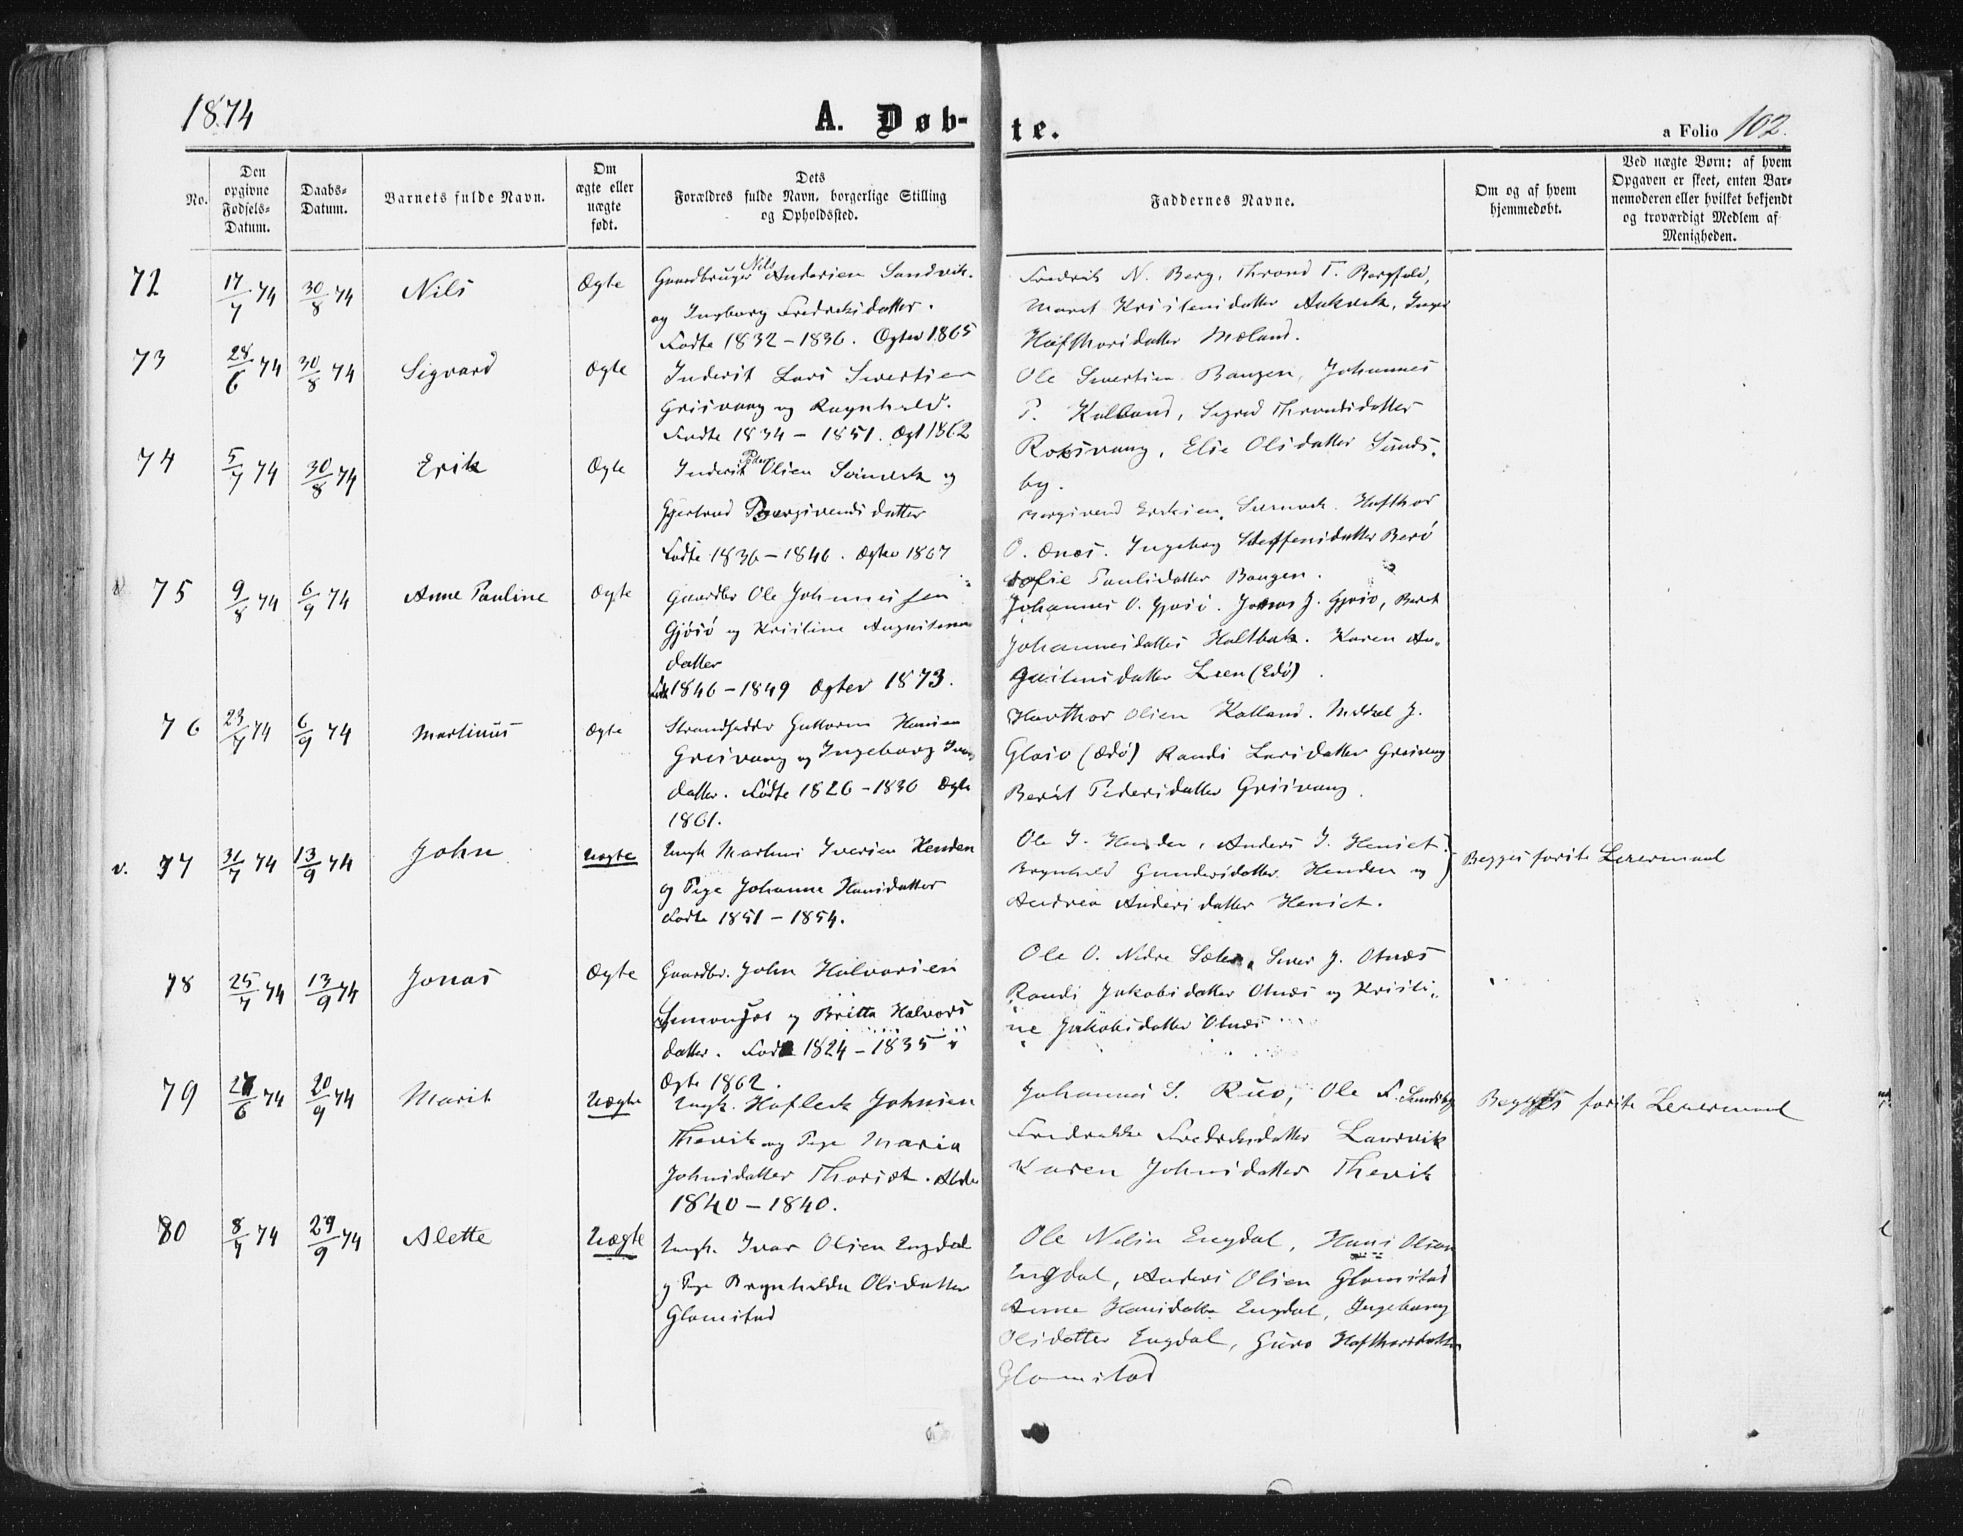 1874
A. Døb-
te.
a Folio 102.
No.
Den opgivne Fødsels-Datum.
Daabs-Datum.
Barnets fulde Navn.
Om ægte eller uægte født.
Dets Forældres fulde Navn, borgerlige Stilling og Opholdssted.
Faddernes Navne.
Om og af hvem hjemmedøbt.
Ved uægte Børn: af hvem Opgaven er skeet, enten Barnemoderen eller hvilket bekjendt og troværdigt Medlem af Menigheden.
72 17/7 74 30/8 74 Nils Ægte
Gaardbruger Nils Andersen Sandvik.
og Ingborg Fredriksdatter.
Fødte 1832 – 1836. Ægtev 1865
Fredrik N. Berg, Thrond T.
Marit Kristensdatter
Hafthorsdatter Mæland.
73 28/6 74 30/8 74 Sigvard Ægte
Inderst Lars Sivertsen
Grisvaag og Ragnhild.
Fødte 1834 – 1851. Ægt 1862
Ole Sivertsen Baugen, Johannes
T. Kalland, Sigrid Throndsdatter
Roksvaag, Elie Olsdatter Sunds-
by.
74 5/7 74 30/8 74 Erik Ægte
Inderst Peder Olsen og
Gjertrud Bergsvendsdatter
Fødte 1836 – 1846. Ægtev 1867
Bergsvend Eriksen. Hafthor
O. Ænes. Ingebog Steffensdatter
Paulsdatter Baugen.
75 9/8 74 6/9 74 Anne Pauline Ægte
Gaardbr Ole Johannessen
Gjøsø og Kristine
datter
1846 – 1849 Ægtev 1873.
Johannes O. Gjøsø. Jonas J. Gjøsø, Berit
Johannesdatter Holtbak. Karen Au-
gustinsdatter Leen (Edø).
76 23/7 74 6/9 74 Martinus Ægte
Strandsidder Guttorm Hansen
Grisvaag og Ingeborg
datter. Fødte 1826 – 1830 Ægte
1861.
Havthor Olsen Kalland. Mikkel J.
(Ædø) Randi Larsdatter Grisvaag
Berit Pedersdatter Grisvaag.
v. 77 31/7 74 13/9 74 John Uægte
Ungk Martinus Iversen Henden
og Pige Johanna Hansdatter
Fødte 1851 – 1854.
Ole I. Henden, Anders I. Henset.
Brynhild Gundersdatter Henden og
Andrea Andersdatter Henset.
Begges første Leiermaal
78 25/7 74 13/9 74 Jonas Ægte
Gaardbr. John Halvorsen
og Britta Halvors
datter. Født 1824 – 1835
Ægte 1862.
Ole O. Nedre Sæter, Siver J. Otnæs
Randi Jakobsdatter Otnæs og Kristi-
ne Jakobsdatter Otnæs
79 6 74 20/9 74 Marit Uægte
Ungk. Johnsen
Thevik og Pige Maria
Johnsdatter
1840 – 1840.
Johannes S. Ruø, Ole F. Sundsby
Fredrikke Fredriksdatter Laurvik
Karen Johnsdatter Thevik
Begges første Leiermaal
80 8/7 74 29/9 74 Alette Uægte
Ungk. Ivar Olsen Engdal
og Pige Brynhilda Olsdatter
Glamstad
Ole Nilsen Engdal, Hans Olsen
Engdal, Anders Olsen Glamstad
Anne Hansdatter Engdal, Ingeborg
Olsdatter Engdal, Guro Hafthorsdatter
Glamstad